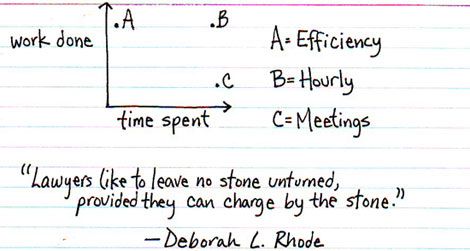 .A
.B
work done
.C
time spent
A= Efficiency
B= Hourly
C= Meetings
"Lawyers like to leave no stone unturned,
provided they can charge by the stone."
—Deborah L. Rhode